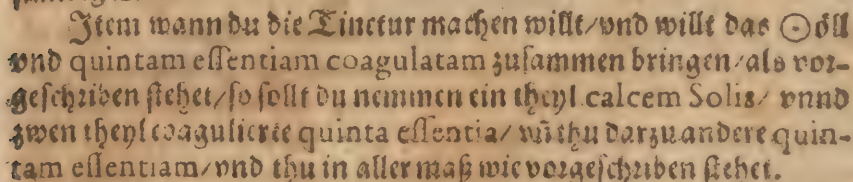 Item wann du die Tinctur machen willt/vnd willt das ☉öll
vnd quintam essentiam coagulatam zusammen bringen/als vor-
geschriben stehet/so sollt du nemmen ein theyl calcem Solis/ vnnd
zwen theyl coagulierte quinta essentia/ vñ thu darzu andere quin-
tam essentiam/vnd thu in aller maß wie vorgeschriben stehet.